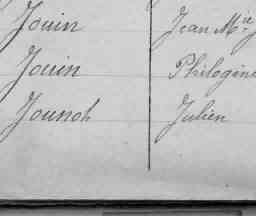 Jouin Jean Mie J
Jouin Philogène
Jounot Julien